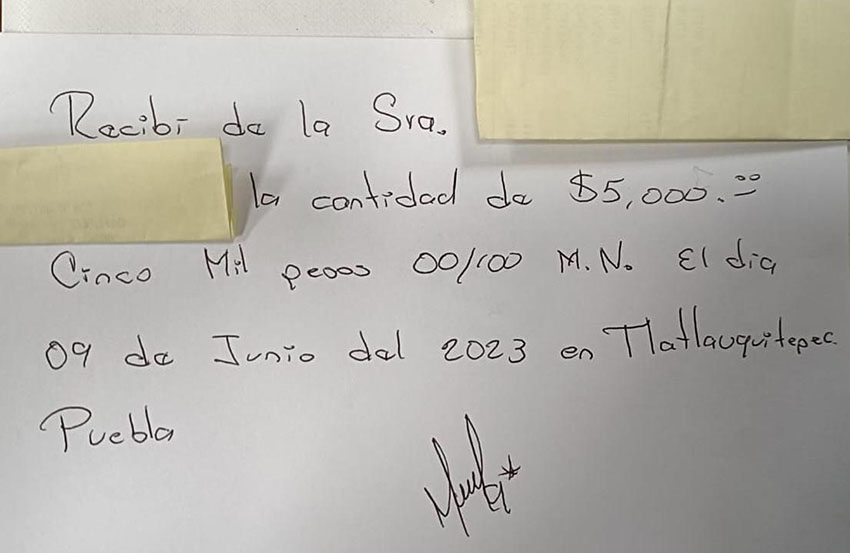 Recibí de la Sra.
la cantidad de $5,000.00
Cinco Mil pesos 00/100 M.N. El día
09 de Junio del 2023 en Tlatlauquitepec.
Puebla